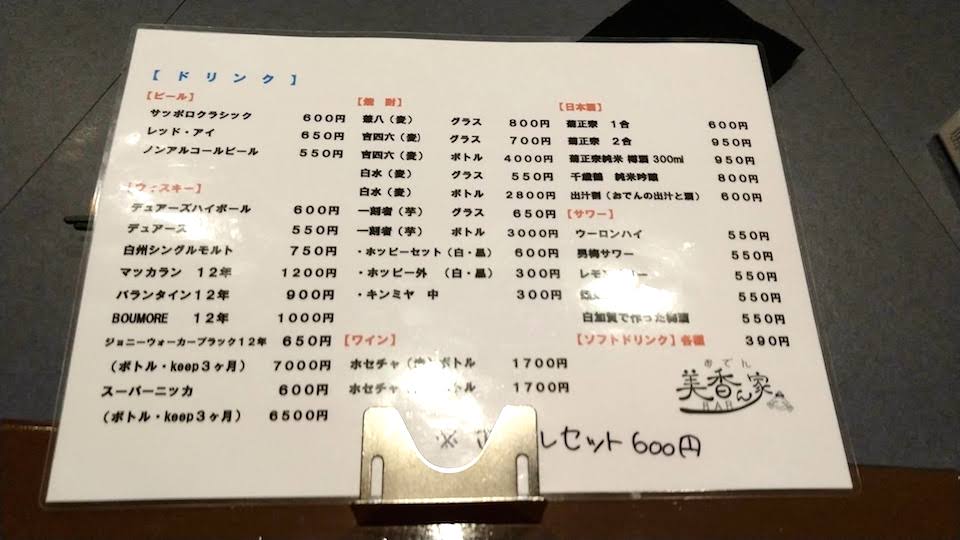 【 ド リ ン ク 】
【ビール】
サッポロクラシック 600円
レッド・アイ 650円
ノンアルコールビール 550円
【ウィスキー】
デュアーズハイボール 600円
デュアーズ 550円
白州シングルモルト 750円
マッカラン 12年 1200円
バランタイン12年 900円
BOUMORE 12年 1000円
ジョニーウォーカーブラック12年 650円
(ボトル・keep3ヶ月) 7000円
スーパーニッカ 600円
(ボトル・keep3ヶ月) 6500円
【焼 酎】
兼八(麦) グラス 800円
吉四六(麦) グラス 700円
吉四六(麦) ボトル 4000円
白水(麦) グラス 550円
白水(麦) ボトル 2800円
一刻者(芋) グラス 650円
一刻者(芋) ボトル 3000円
・ホッピーセット(白・黒) 600円
・ホッピー外 (白・黒) 300円
・キンミヤ 中 300円
【ワイン】
ホセチャ ボトル 1700円
ホセチャ ボトル 1700円
【日本酒】
菊正宗 1合 600円
菊正宗 2合 950円
菊正宗純米 樽酒 300ml 950円
千歳鶴 純米吟醸 800円
出汁割(おでんの出汁と酒) 600円
【サワー】
ウーロンハイ 550円
男梅サワー 550円
レモン 550円
550円
白加賀で作った梅酒 550円
【ソフトドリンク】各種 390円
おでん
美香ん家
BAR
※ セット600円